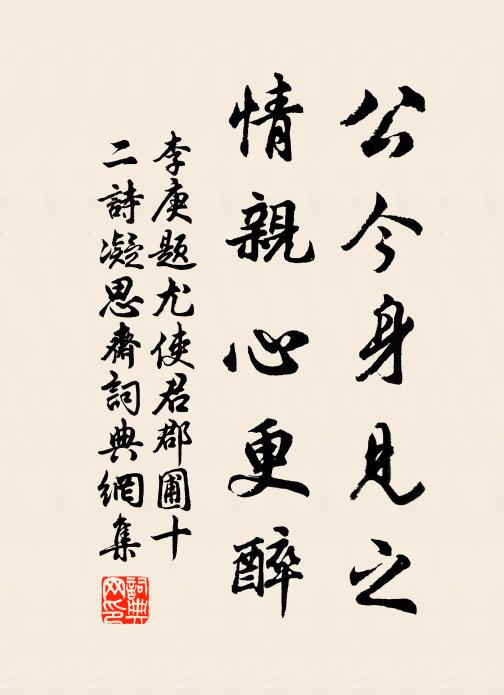 公今身見之
情親心更醉
李庚題尤使君郡圃十
二詩凝思齋詞典網集
詞典网印